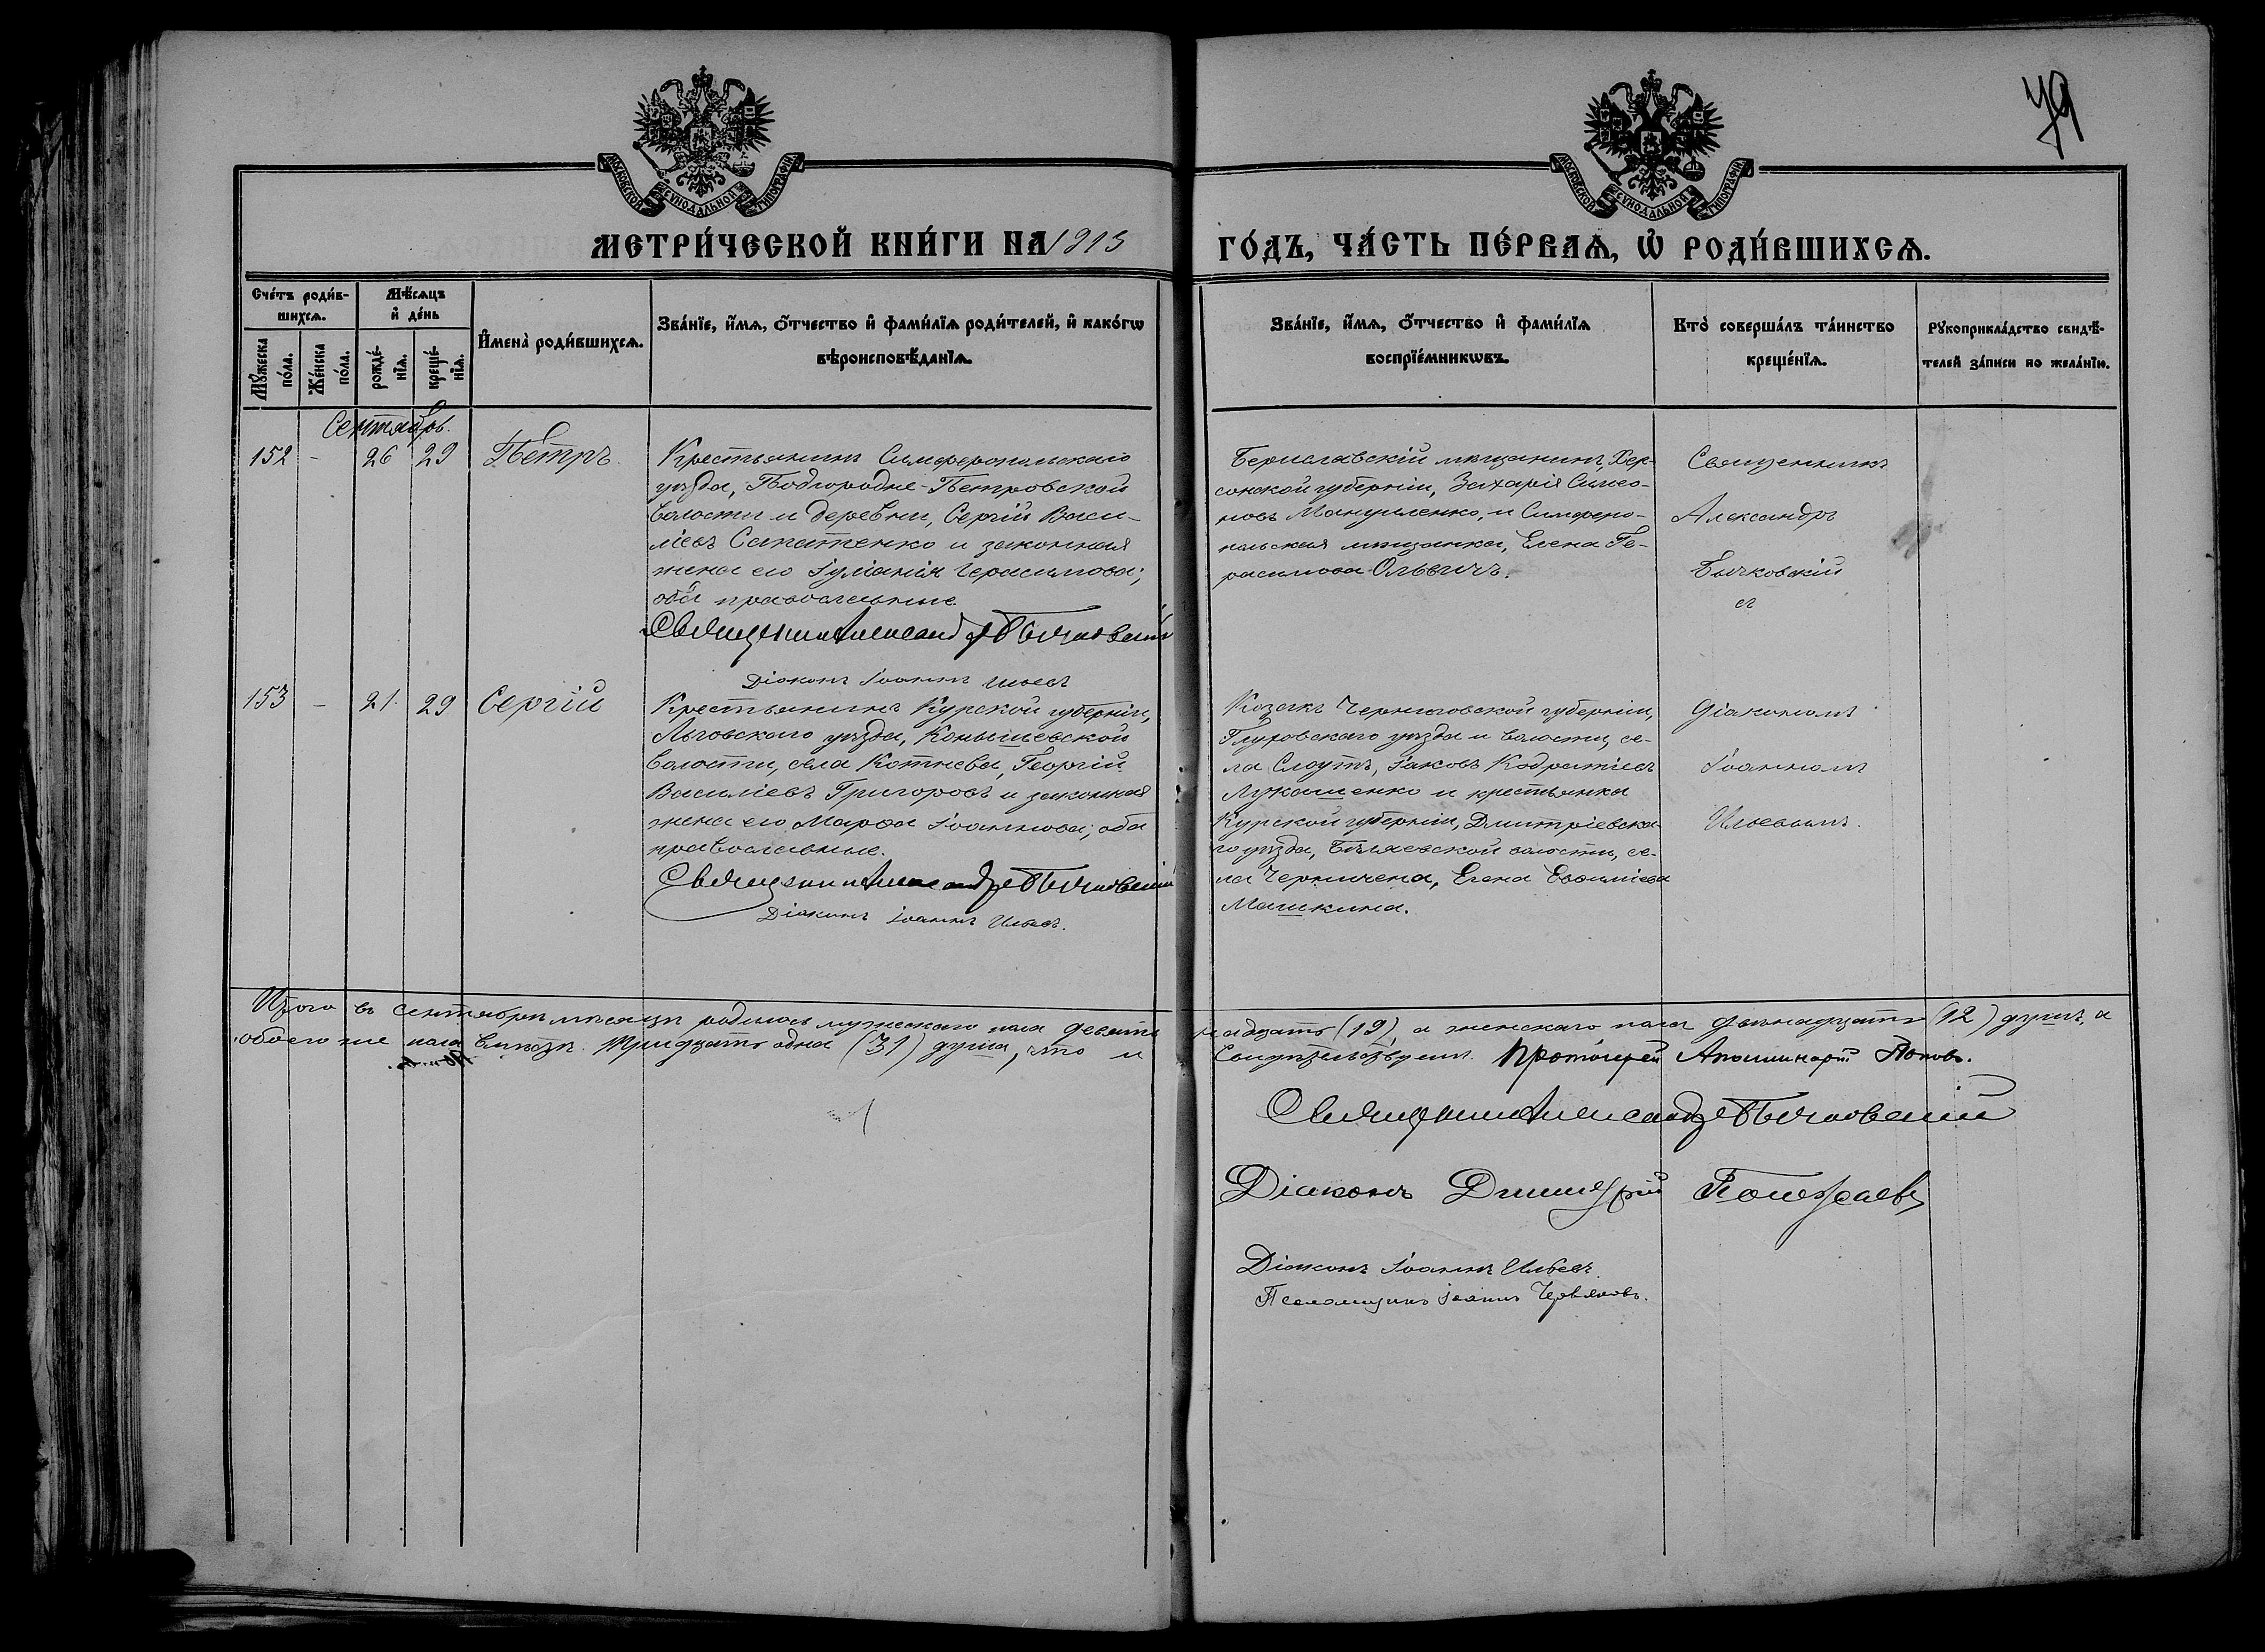 79
МОСКОВСКОЙ СУНОДАЛЬНОЙ ТИПОГРАФІИ
МОСКОВСКОЙ СУНОДАЛЬНОЙ ТИПОГРАФІИ
МЕТРИ́ЧЕСКОЙ КНИ́ГИ НА 1913
ГО́ДЪ, ЧА́СТЬ ПЕ́РВАѦ, Ѡ҆ РОДИ́ВШИХСѦ.
Сче́тъ роди́в-
шихсѧ.
Мꙋ́жеска по́ла.
Же́нска по́ла.
Мѣ́сѧцъ
и҆ де́нь
рожде́-
нїѧ.
креще́-
нїѧ.
И҆мена̀ роди́вшихсѧ.
Зва́нїе, и҆́мѧ, ѻ҆́тчество и҆ фами́лїѧ роди́телей, и҆ како́гѡ
вѣроисповѣ́данїѧ.
Зва́нїе, и҆́мѧ, ѻ҆́тчество и҆ фами́лїѧ
воспрїе́мникѡвъ.
Кто̀ соверша́лъ та́инство
креще́нїѧ.
Рꙋкоприкла́дство свидѣ́-
телей за́писи по жела́нїю.
Сентябрь.
152 - 26 29 Петръ.
Крестьянинъ Симферопольскаго
уѣзда, Подгородне-Петровской
волости и деревни, Сергій Васи-
ліевъ Сапатенко и законная
жена его Іуліанія Герасимова;
оба православные
Священникъ Александръ Бычковскій
Діаконъ Іоаннъ Ильевъ
Бериславскій мѣщанинъ, Хер-
сонской губерніи, Захарія Симео-
новъ Мануиленко, и Симферо-
польская мѣщанка, Елена Ге-
расимова Ольвичъ.
Священникъ
Александръ
Бычковскій
153 - 21. 29 Сергій
Крестьянинъ Курской губерніи,
Льговскаго уѣзда, Конышевской
волости, села Котнева, Георгій
Василіевъ Григоровъ и законная
жена его Марѳа Іоаннова; оба
православные.
Священникъ Александръ Бычковскій
Діаконъ Іоаннъ Ильевъ.
Козакъ Черниговской губерніи,
Глуховскаго уѣзда и волости, се-
ла Слоутъ, Іаковъ Кодратіевъ
Лукашенко и крестьянка
Курской губерніи, Дмитріевска-
го уѣзда, Бѣляевской волости, се-
ла Черничена, Елена Евѳиміева
Машкина.
Діакономъ
Іоанномъ
Ильевымъ.
Итого въ сентябрѣ мѣсяцѣ родилось мужескаго пола девятнадцать (19), а женскаго пола двѣнадцать (12) душъ, а
обоего же пола вмѣстѣ тридцать одна (31) душа, что и свидѣтельствуемъ. Протоіерей Аполлинарій Поповъ.
Священникъ Александръ Бычковскій
Діаконъ Димитрій
Діаконъ Іоаннъ Ильевъ
Псаломщикъ Іоаннъ Червяковъ.